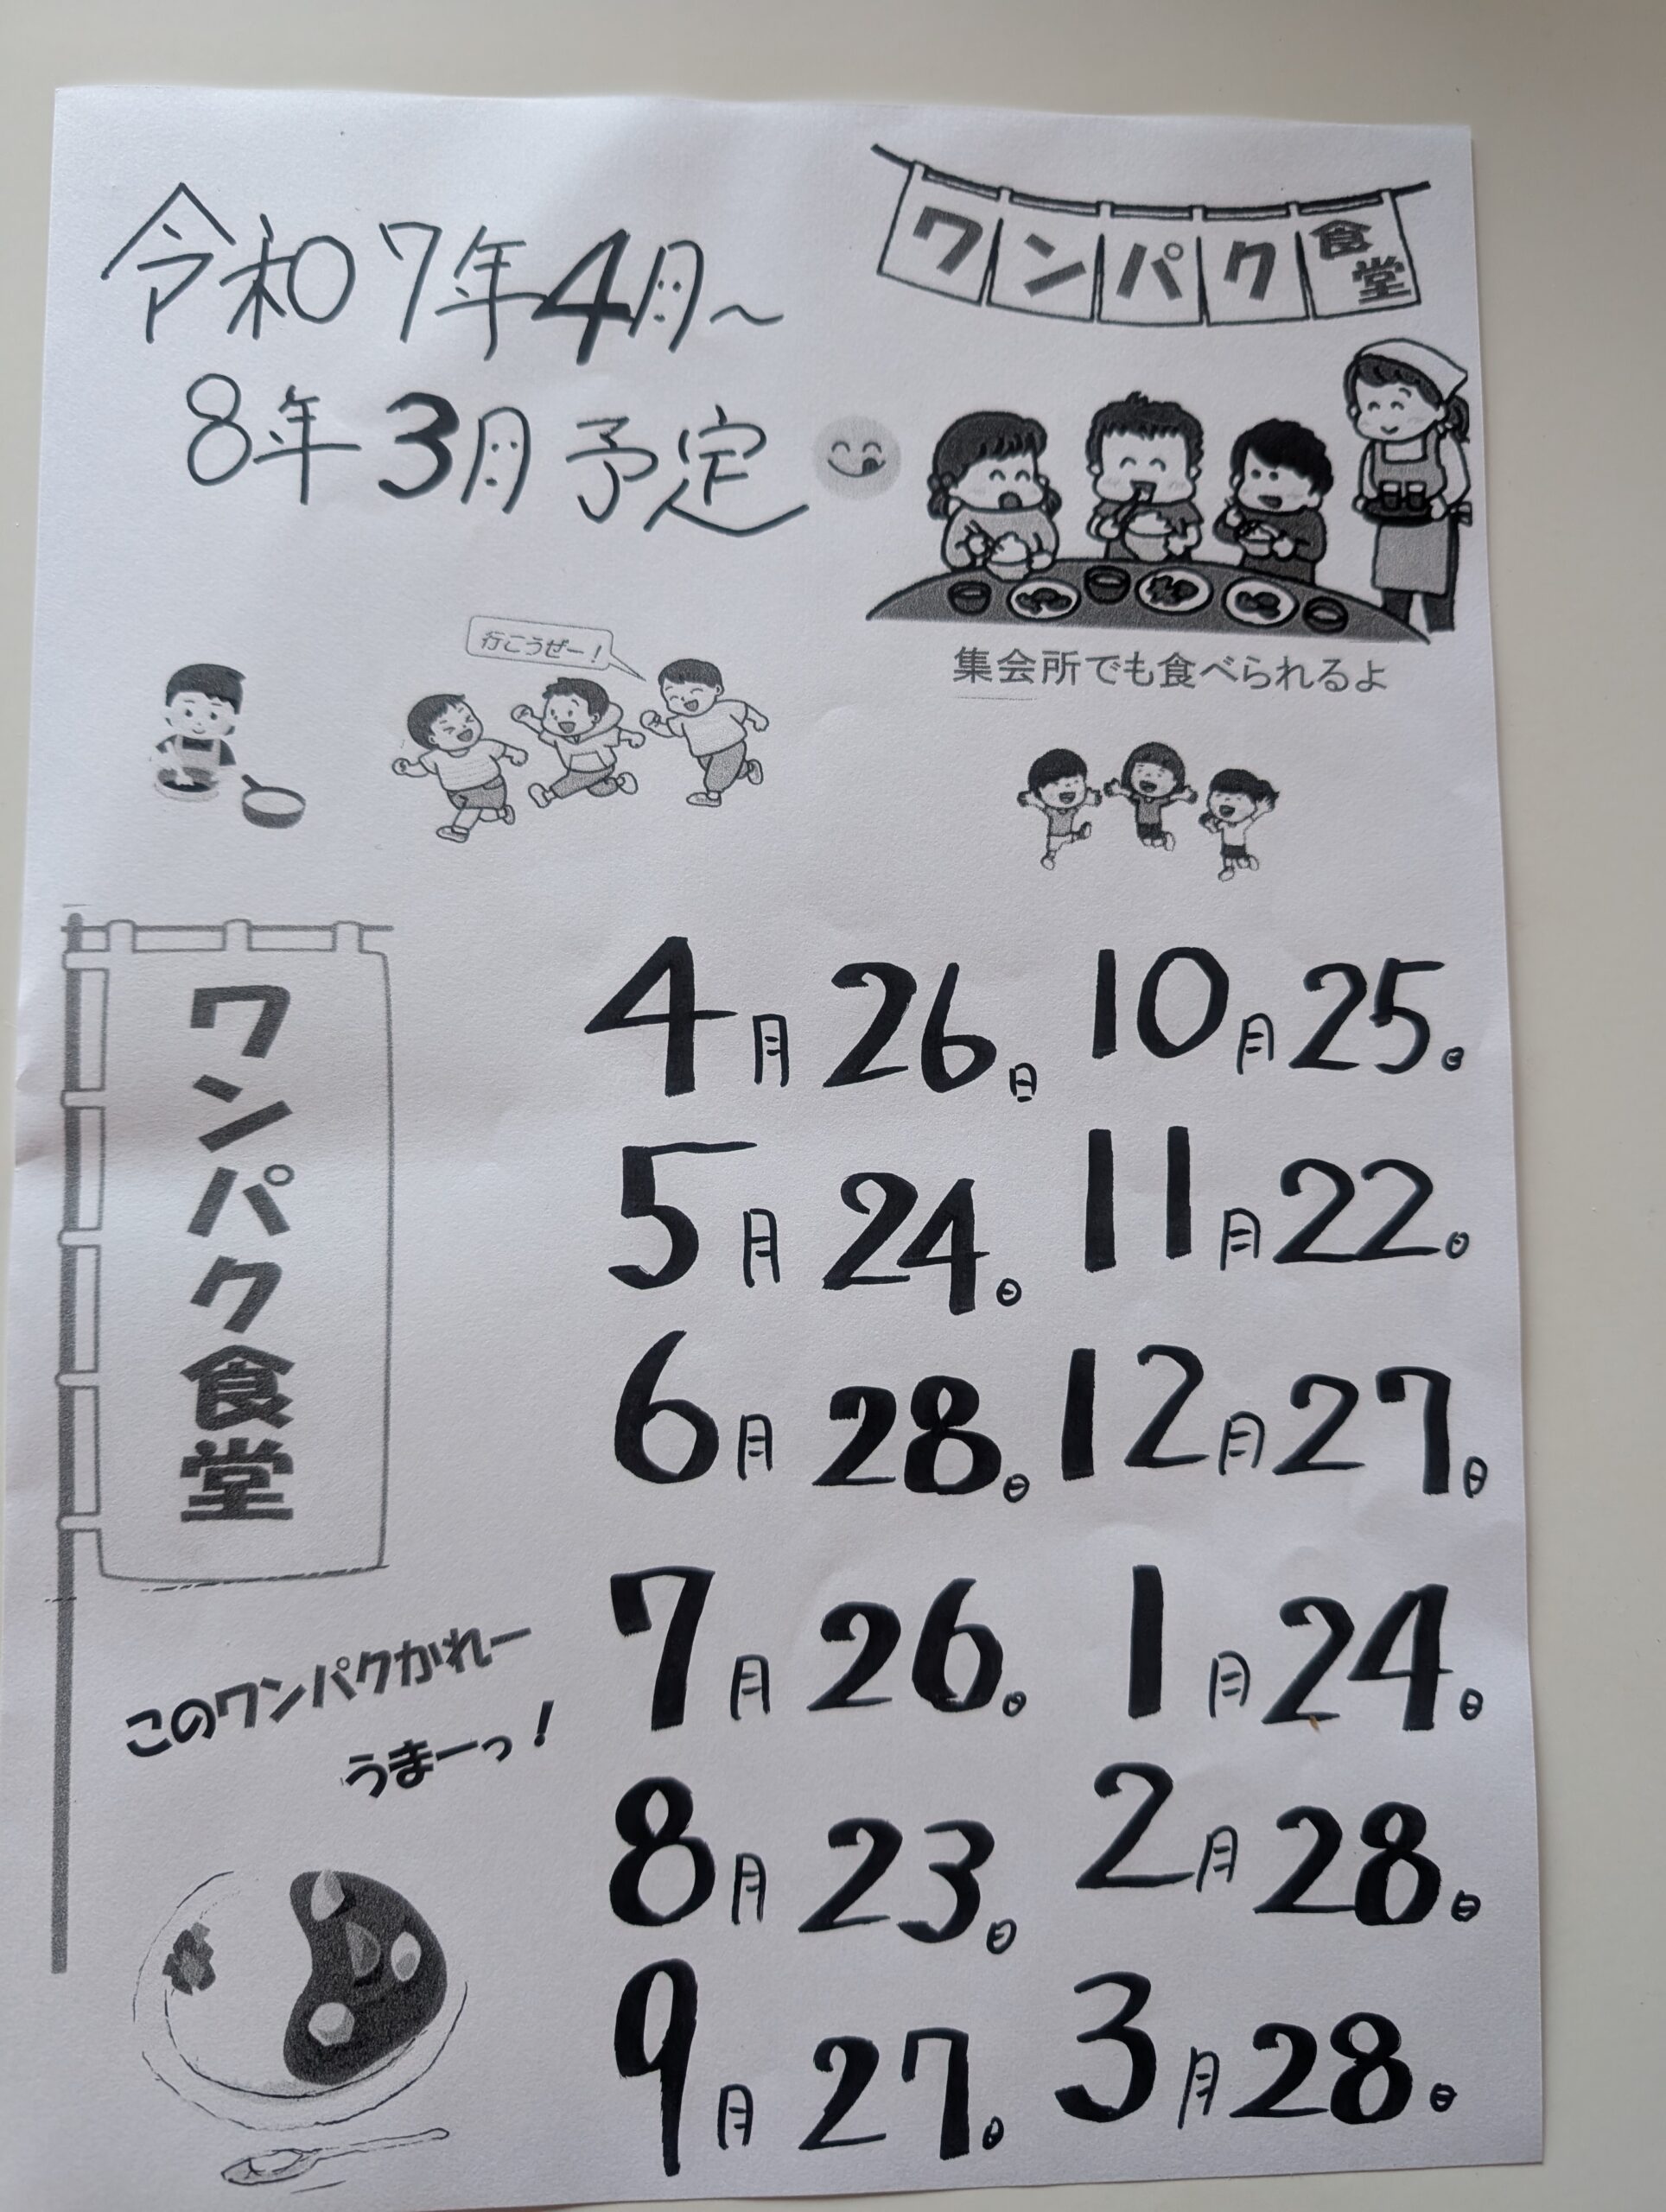 令和7年4月～
8年3月予定
ワンパク食堂
集会所でも食べられるよ
行こうぜー！
ワンパク食堂
4月26日
5月24日
6月28日
7月26日
8月23日
9月27日
10月25日
11月22日
12月27日
1月24日
2月28日
3月28日
このワンパクかれー
うまーっ！